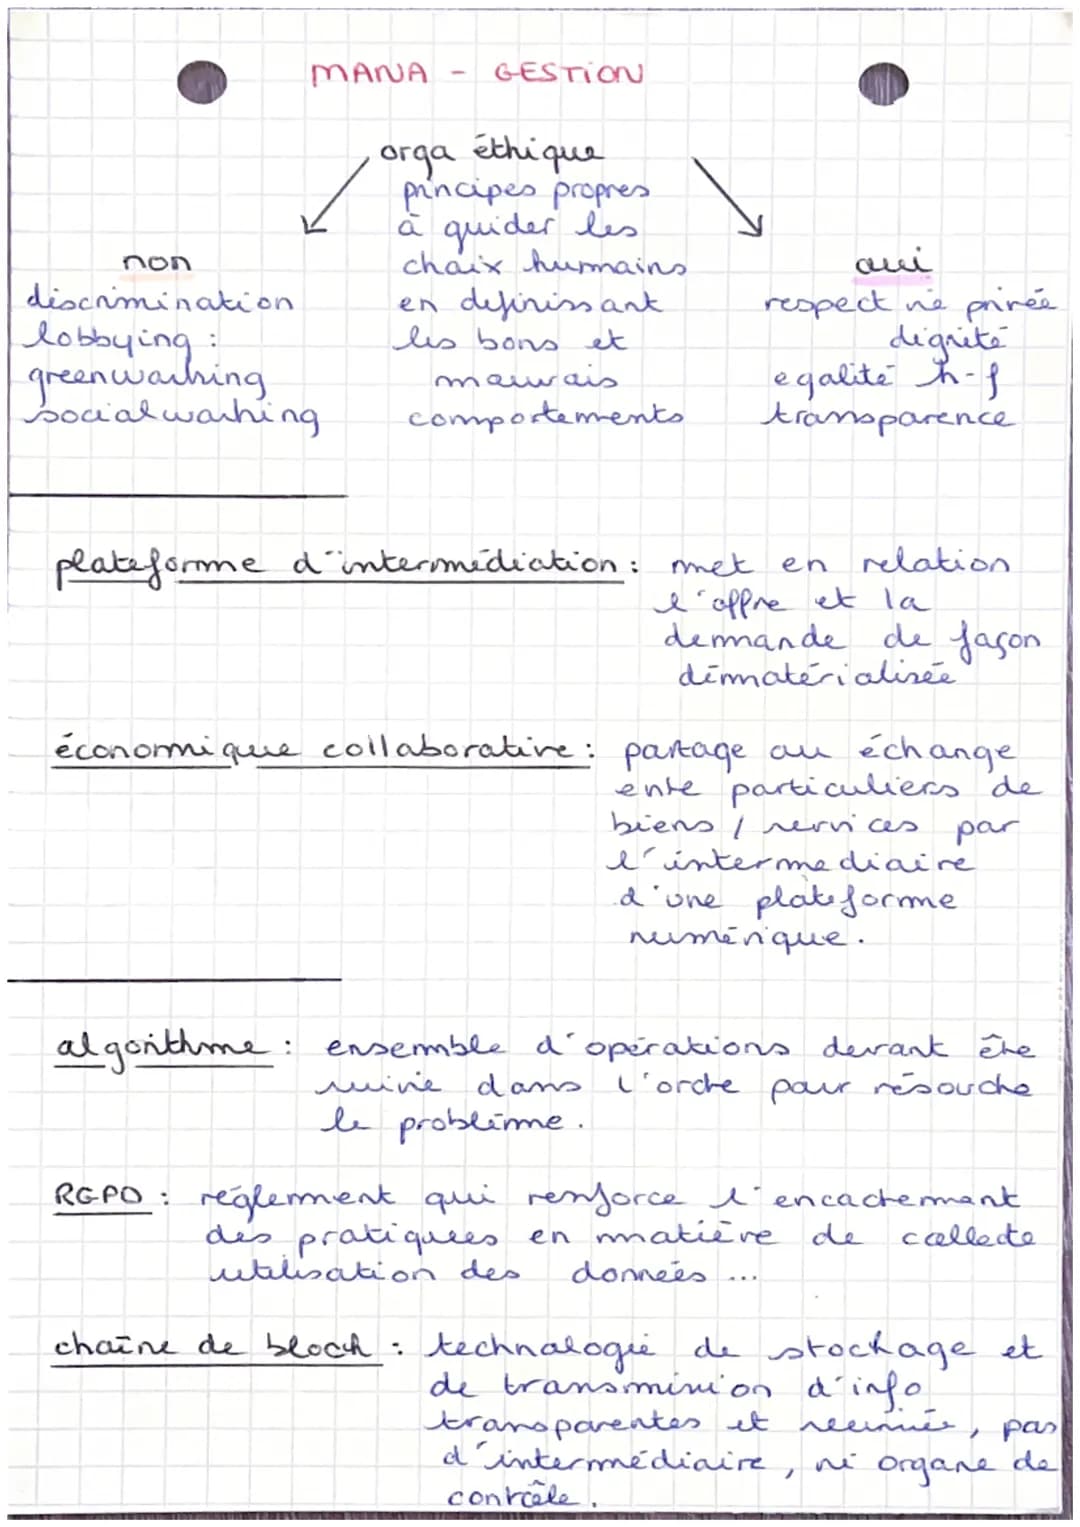 MANA - GESTION
orga éthique
principes propres
à guider les
choix humains
en définissant
les bons et
mauvais
comportements
non
discrimination
lobbying :
greenwashing
socialwashing
oui
respect vie privée
dignité
egalité h-f
transparence
plateforme d'intermédiation : met en relation
l'offre et la
demande de façon
dématérialisée
économique collaborative : partage ou échange
entre particuliers de
biens / services par
l'intermediaire
d'une plateforme
numérique.
algorithme : ensemble d'opérations devant être
suivie dans l'ordre pour résoudre
le problème.
RGPD : réglement qui renforce l'encadrement
des pratiquees en matière de collecte
utilisation des données ...
chaîne de block : technologie de stockage et
de transmission d'info
transparentes et sécurisée, pas
d'intermédiaire, ni organe de
contrôle.